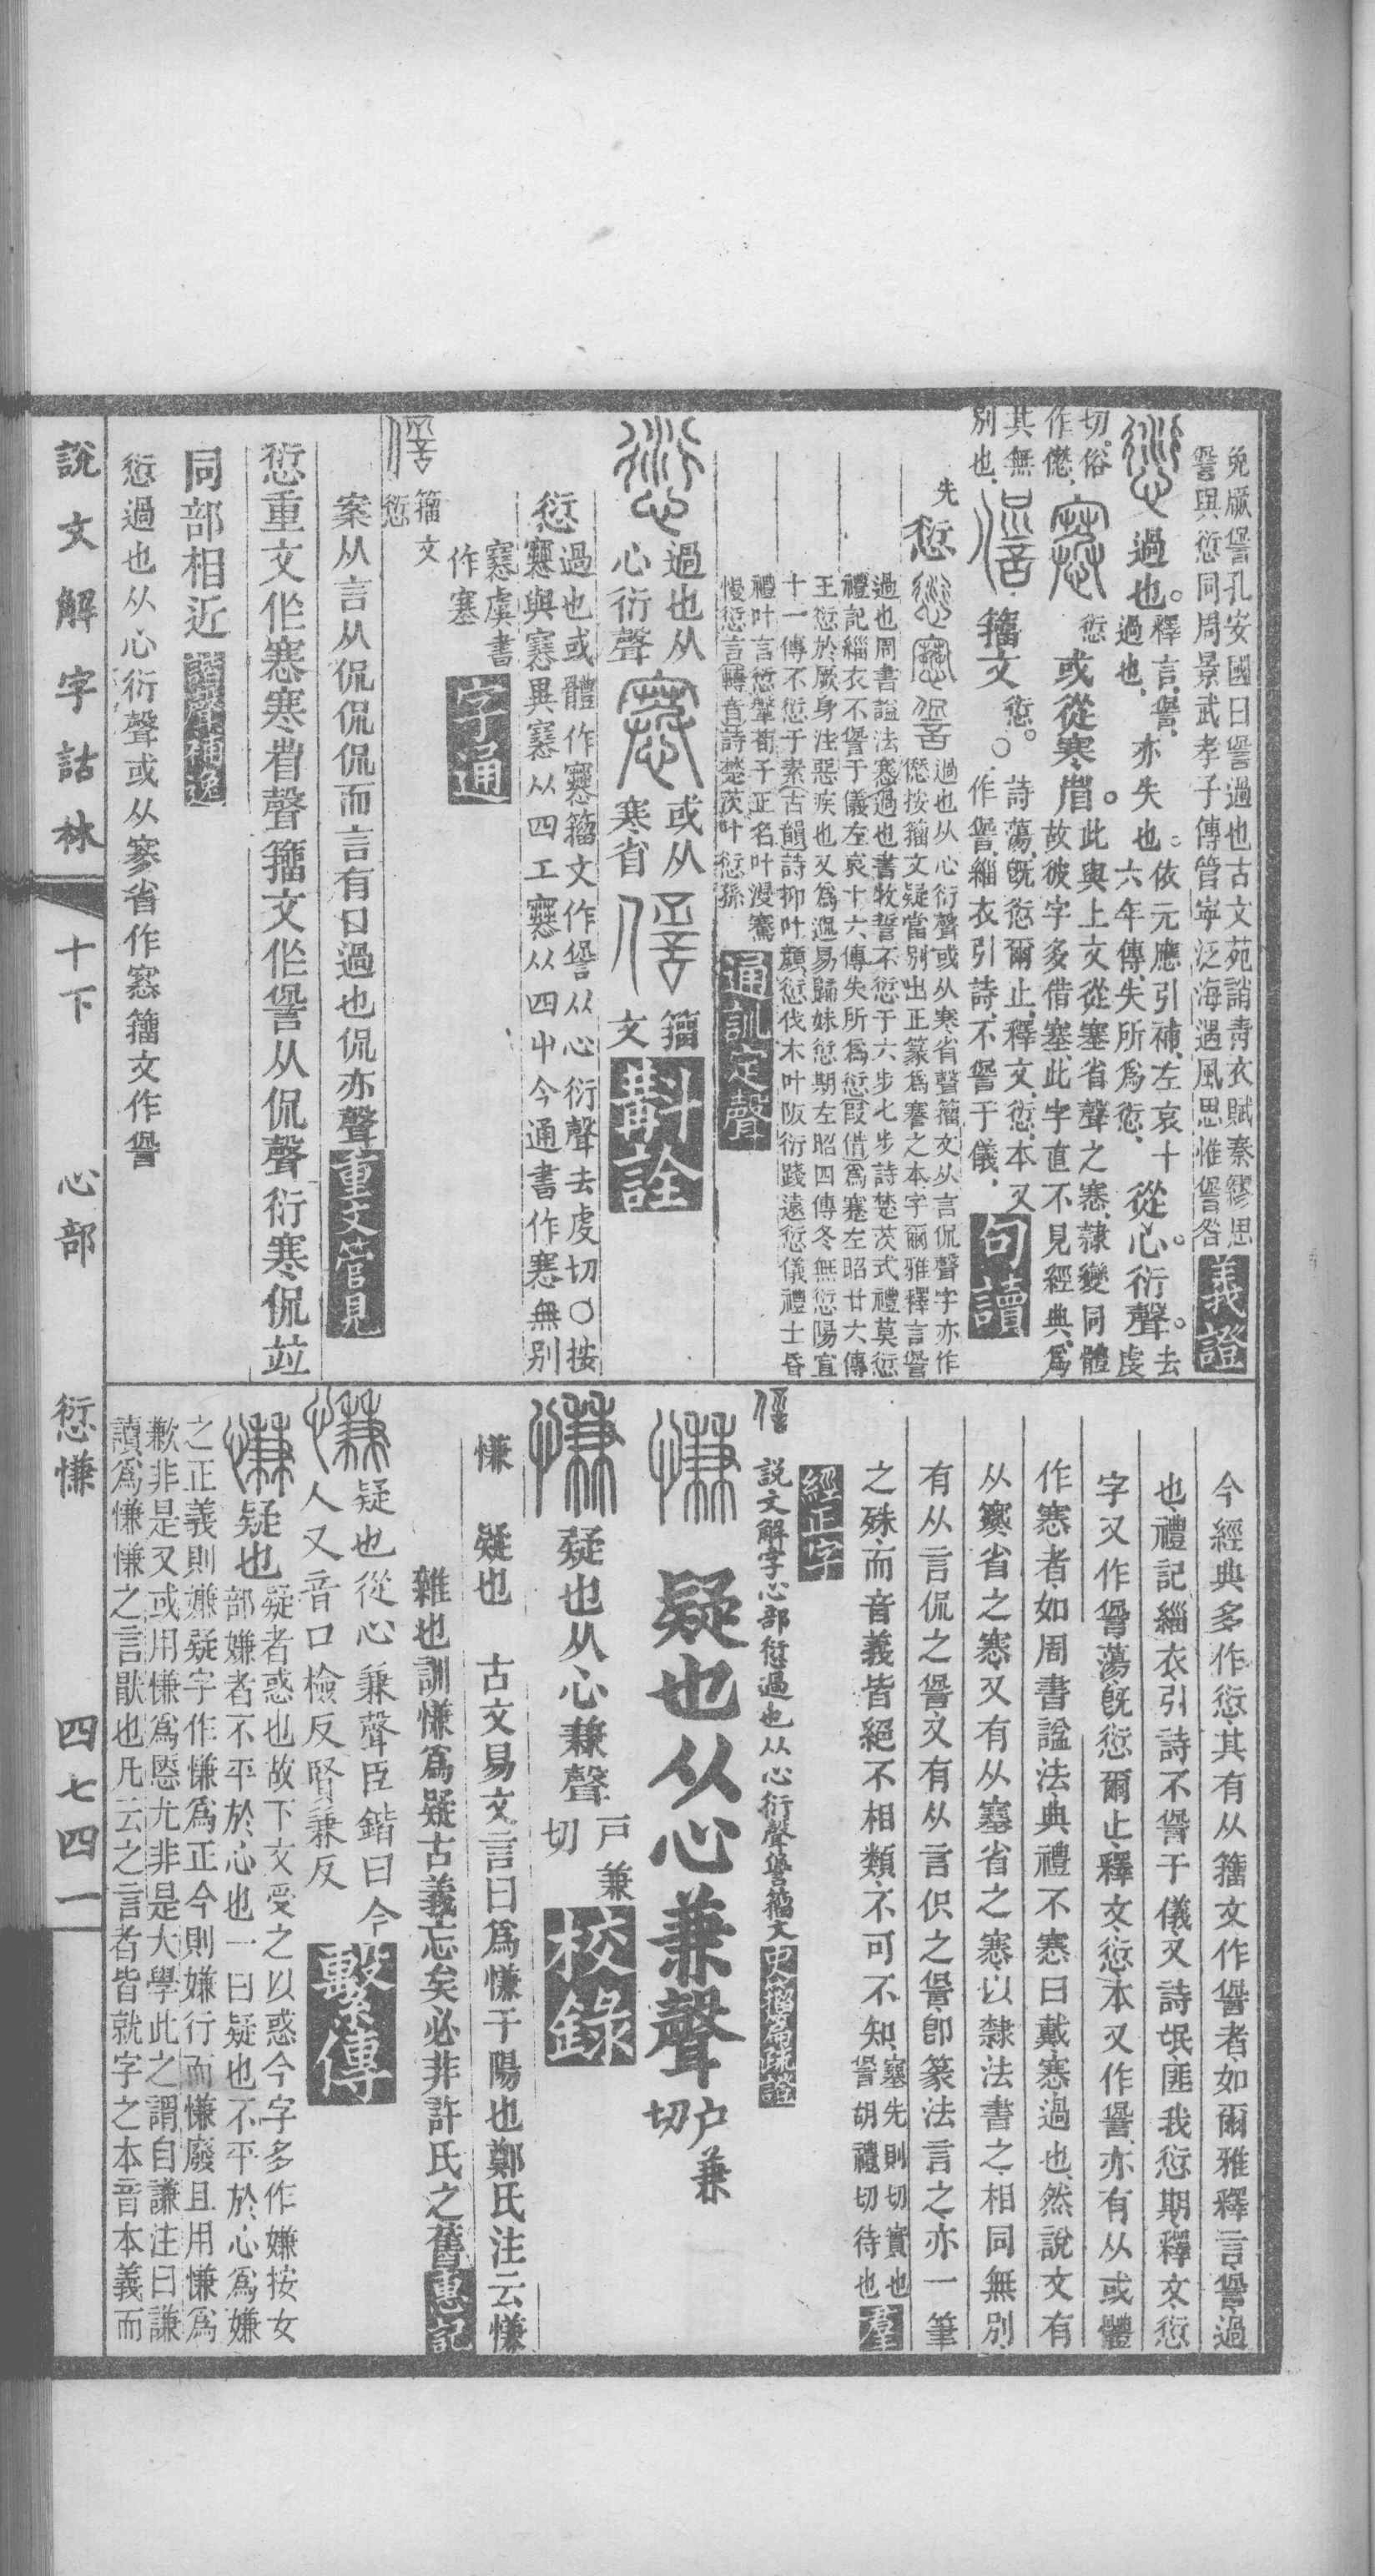 免厥諐孔安國曰諐過也古文苑誚青衣賦秦繆思
諐與愆同周景武孝子傳管寧泛海遇風思惟諐咎 義證
過也。釋言諐過也亦失也。依元應引補左哀十六年傳失所爲愆 從心。衍聲。去虔
切俗作僁 愆或從寒省。此與上文從塞省聲之𡫳隸變同體故彼字多借塞此字直不見經典爲
其無別也 籀文愆。○詩蕩既愆爾止釋文愆本又作諐緇衣引詩不諐于儀 句讀
先
愆 過也从心衍聲或从寒省聲籀文从言侃聲字亦作僁按籀文疑當別出正篆爲謇之本字爾雅釋言諐
過也周書謚法𡫳過也書牧誓不愆于六步七步詩楚茨式禮莫愆
禮記緇衣不諐于儀左哀十六傳失所爲愆叚借爲蹇左昭廿六傳
王愆於厥身注惡疾也又爲過易歸妹愆期左昭四傳冬無愆陽宣
十一傳不愆于素古韻詩抑叶顏愆伐木叶阪衍踐遠愆儀禮士昏
禮叶言愆鞶荀子正名叶漫騫
慢愆言轉音詩楚茨叶愆孫 通訓定聲
過也从心衍聲 或从寒省 籀文 斠詮
愆 過也或體作𡫳籀文作諐从心衍聲去虔切○按
𡫳與𡫳異𡫳从四工𡫳从四屮今通書作𡫳無別
𡫳虞書作塞 字通
籀文愆
案从言从侃侃侃而言有曰過也侃亦聲 重文管見
愆重文作𡫳寒省聲籀文作諐从侃聲衍寒侃竝
同部相近 諧聲補逸
愆過也从心衍聲或从寒省作𡫳籀文作諐
今經典多作愆其有从籀文作諐者如爾雅釋言諐過
也禮記緇衣引詩不諐于儀又詩氓匪我愆期釋文愆
字又作諐蕩既愆爾止釋文愆本又作諐亦有从或體
作𡫳者如周書謚法典禮不𡫳曰戴𡫳過也然說文有
从寒省之𡫳又有从塞省之𡫳以隸法書之相同無別
有从言侃之諐又有从言伿之諐即篆法言之亦一筆
之殊而音義皆絕不相類不可不知𡫳先則切實也諐胡禮切待也 羣
經正字
說文解字心部愆過也从心衍聲諐籀文 史籀篇疏證
慊 疑也从心兼聲 戶兼切
疑也从心兼聲 戶兼切 校錄
慊 疑也 古文易文言曰爲慊于陽也鄭氏注云慊
雜也訓慊爲疑古義忘矣必非許氏之舊 惠記
疑也從心兼聲臣鍇曰今
人又音口檢反賢兼反 繫傳
疑也 疑者惑也故下文受之以惑今字多作嫌按女
部嫌者不平於心也一曰疑也不平於心爲嫌
之正義則嫌疑字作慊爲正今則嫌行而慊廢且用慊爲
歉非是又或用慊爲愜尤非是大學此之謂自謙注曰謙
讀爲慊慊之言厭也凡云之言者皆就字之本音本義而
說文解字詁林 十下 心部 愆慊 四七四一